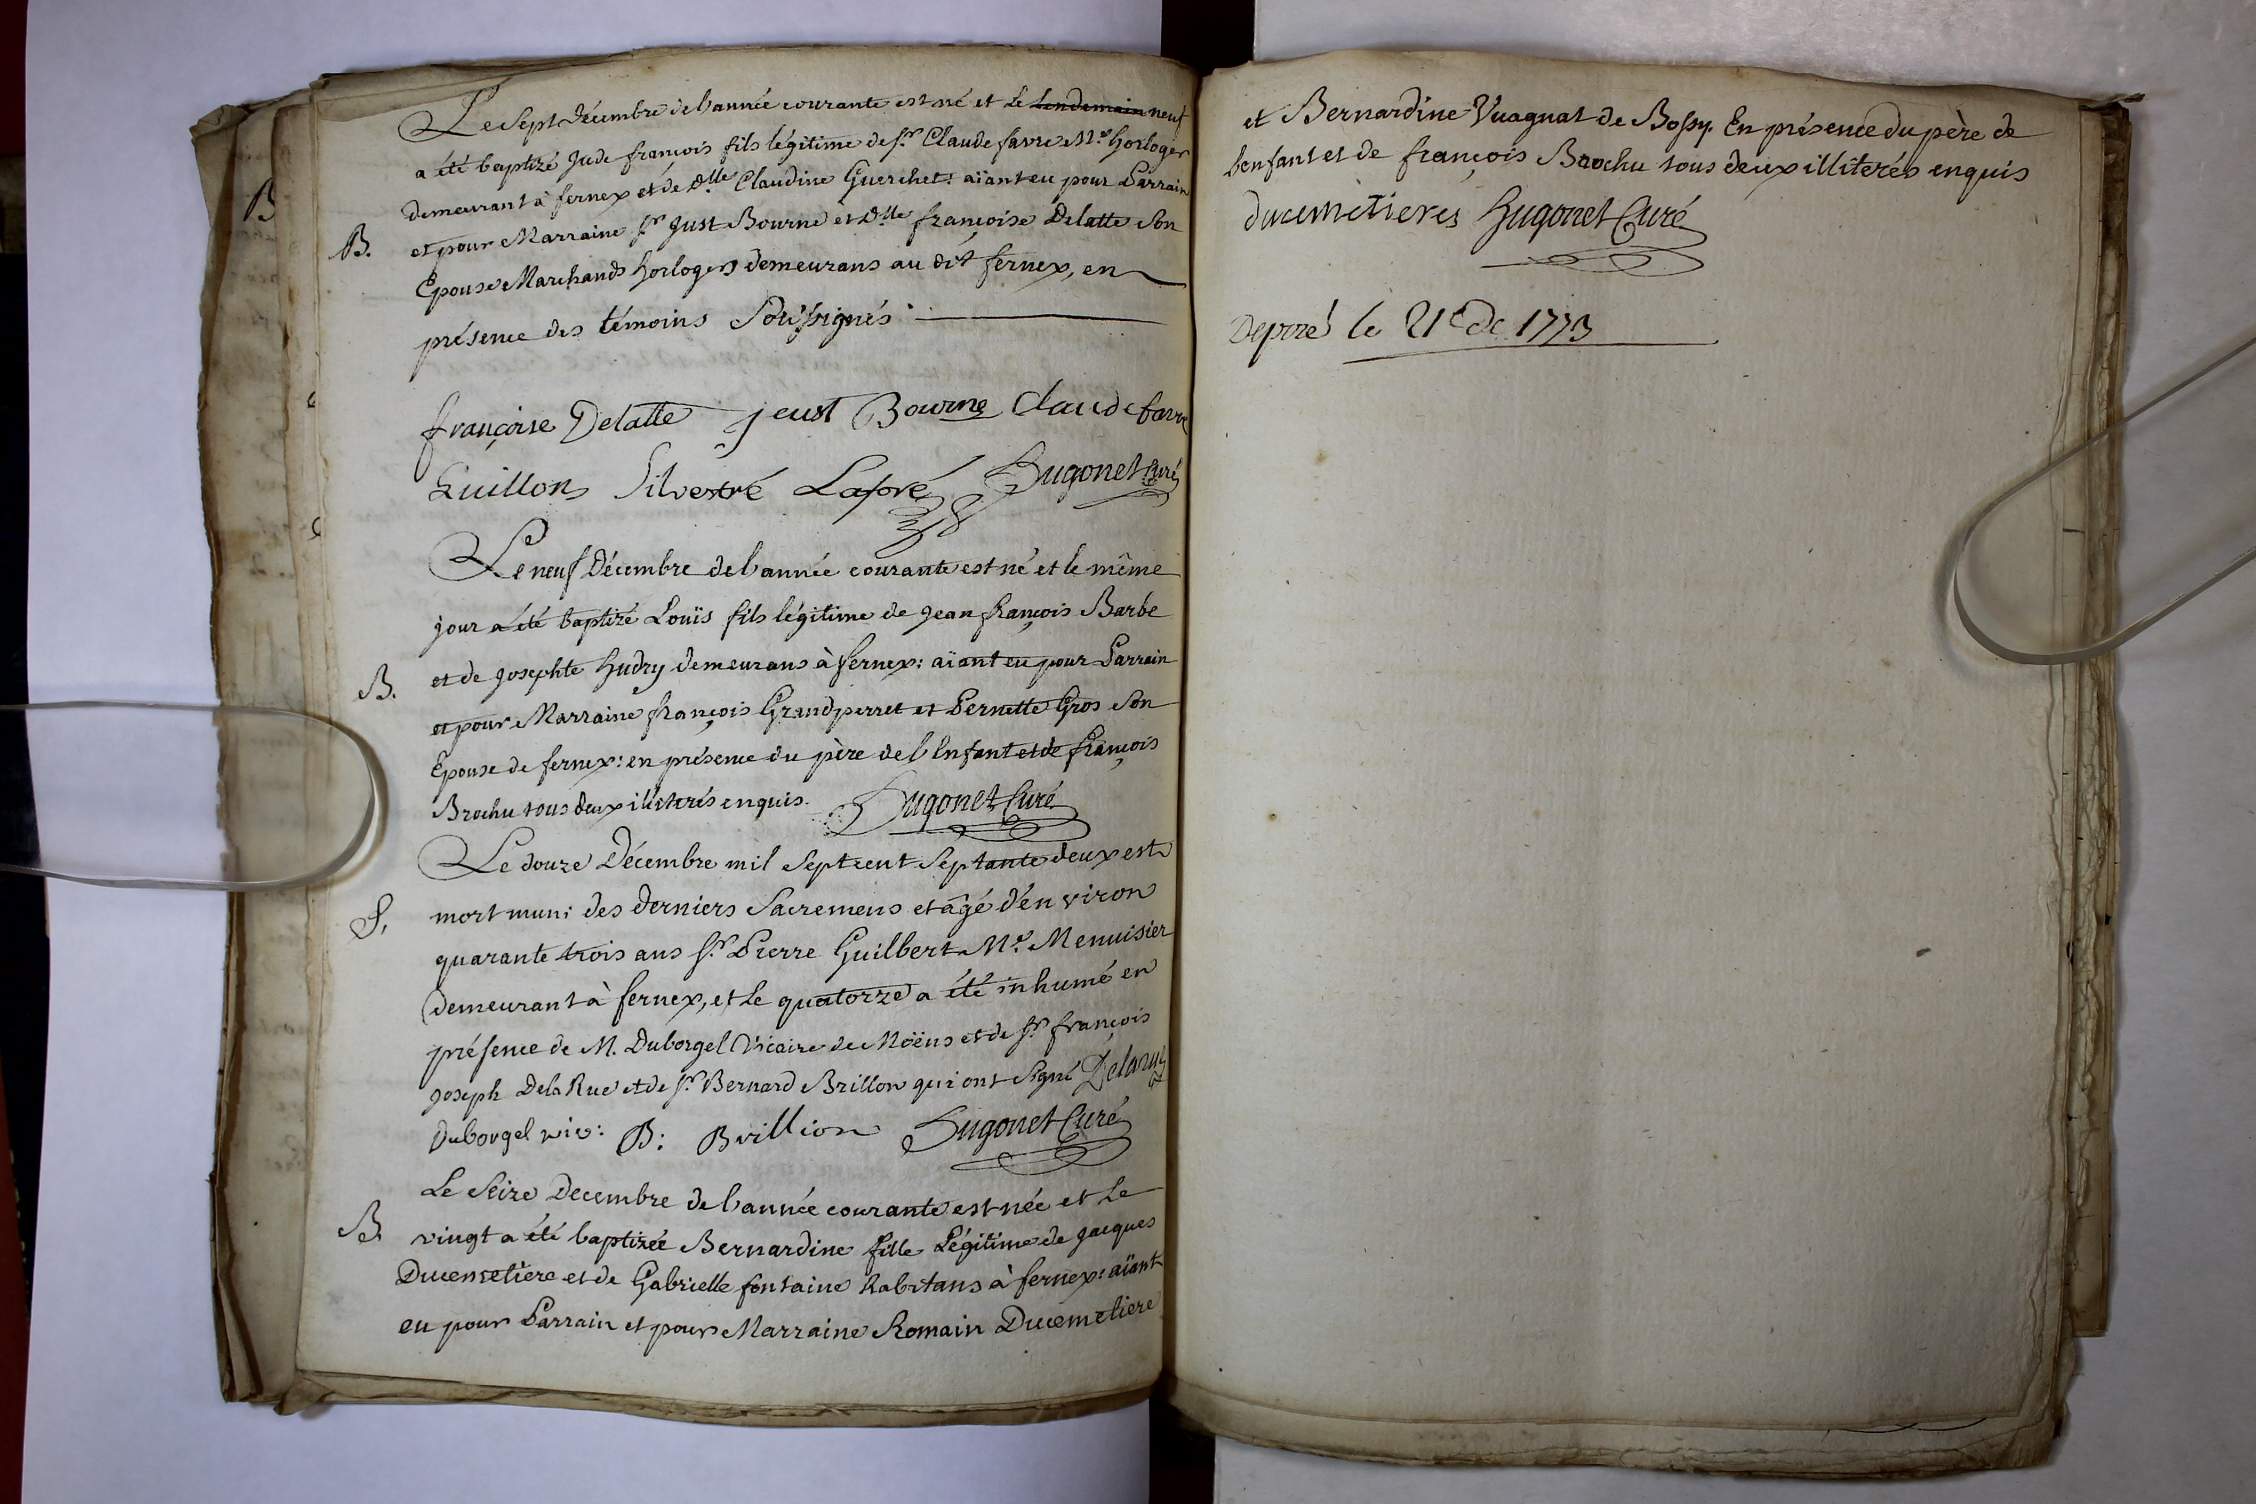 Le Sept Décembre de l'année courante est né et le lendemain neuf
a été baptizé Jude françois fils légitime de Sr. Claude favre Me. horloger
demeurant à fernex et de Dlle Claudine Guerchet: aïant eu pour Parrain
B. et pour Marraine Sr Just Bourne et Dlle françoise Delatte Son
Epouse Marchands horlogers demeurans au dit fernex, en
présence des témoins Soussignés
françoise Delatte jeust Bourne Claude favre
Guillon Silvestré Lapré Hugonet Curé
Le neuf Décembre de l'année courante est né et le même
jour a été baptizé Louïs fils légitime de Jean françois Barbe
B. et de Josephte hudry demeurans à fernex: aïant eu pour Parrain
et pour Marraine françois Grandperret et Pernette Gros Son
Epouse de fernex: en présence du père de l'Enfant et de françois
Brochu tous deux illiterés enquis. Hugonet Curé
Le douze Décembre mil Septcent Septante deux est
S. mort muni des derniers Sacremens et âgé d'environ
quarante trois ans Sr. Pierre Guilbert Me. Menuisier
demeurant à fernex, et le quatorze a été inhumé en
présence de M. Duborgel Vicaire de Moëns et de Sr. françois
Joseph DelaRue et de Sr. Bernard Brillon qui ont Signé Delarue
Duborgel vic: B: Brillion Hugonet Curé
Le Seize Decembre de l'année courante est née et le
B. vingt a été baptizée Bernardine fille Légitime de Jacques
Ducemetiere et de Gabrielle fontaine habitans à fernex: aïant
eu pour Parrain et pour Marraine Romain Ducemetiere
et Bernardine Vuagnat de Bossy. En présence du père de
l'enfant et de françois Brochu tous deux illiterés enquis
ducemetieres Hugonet Curé
Deposé le 21e de 1773